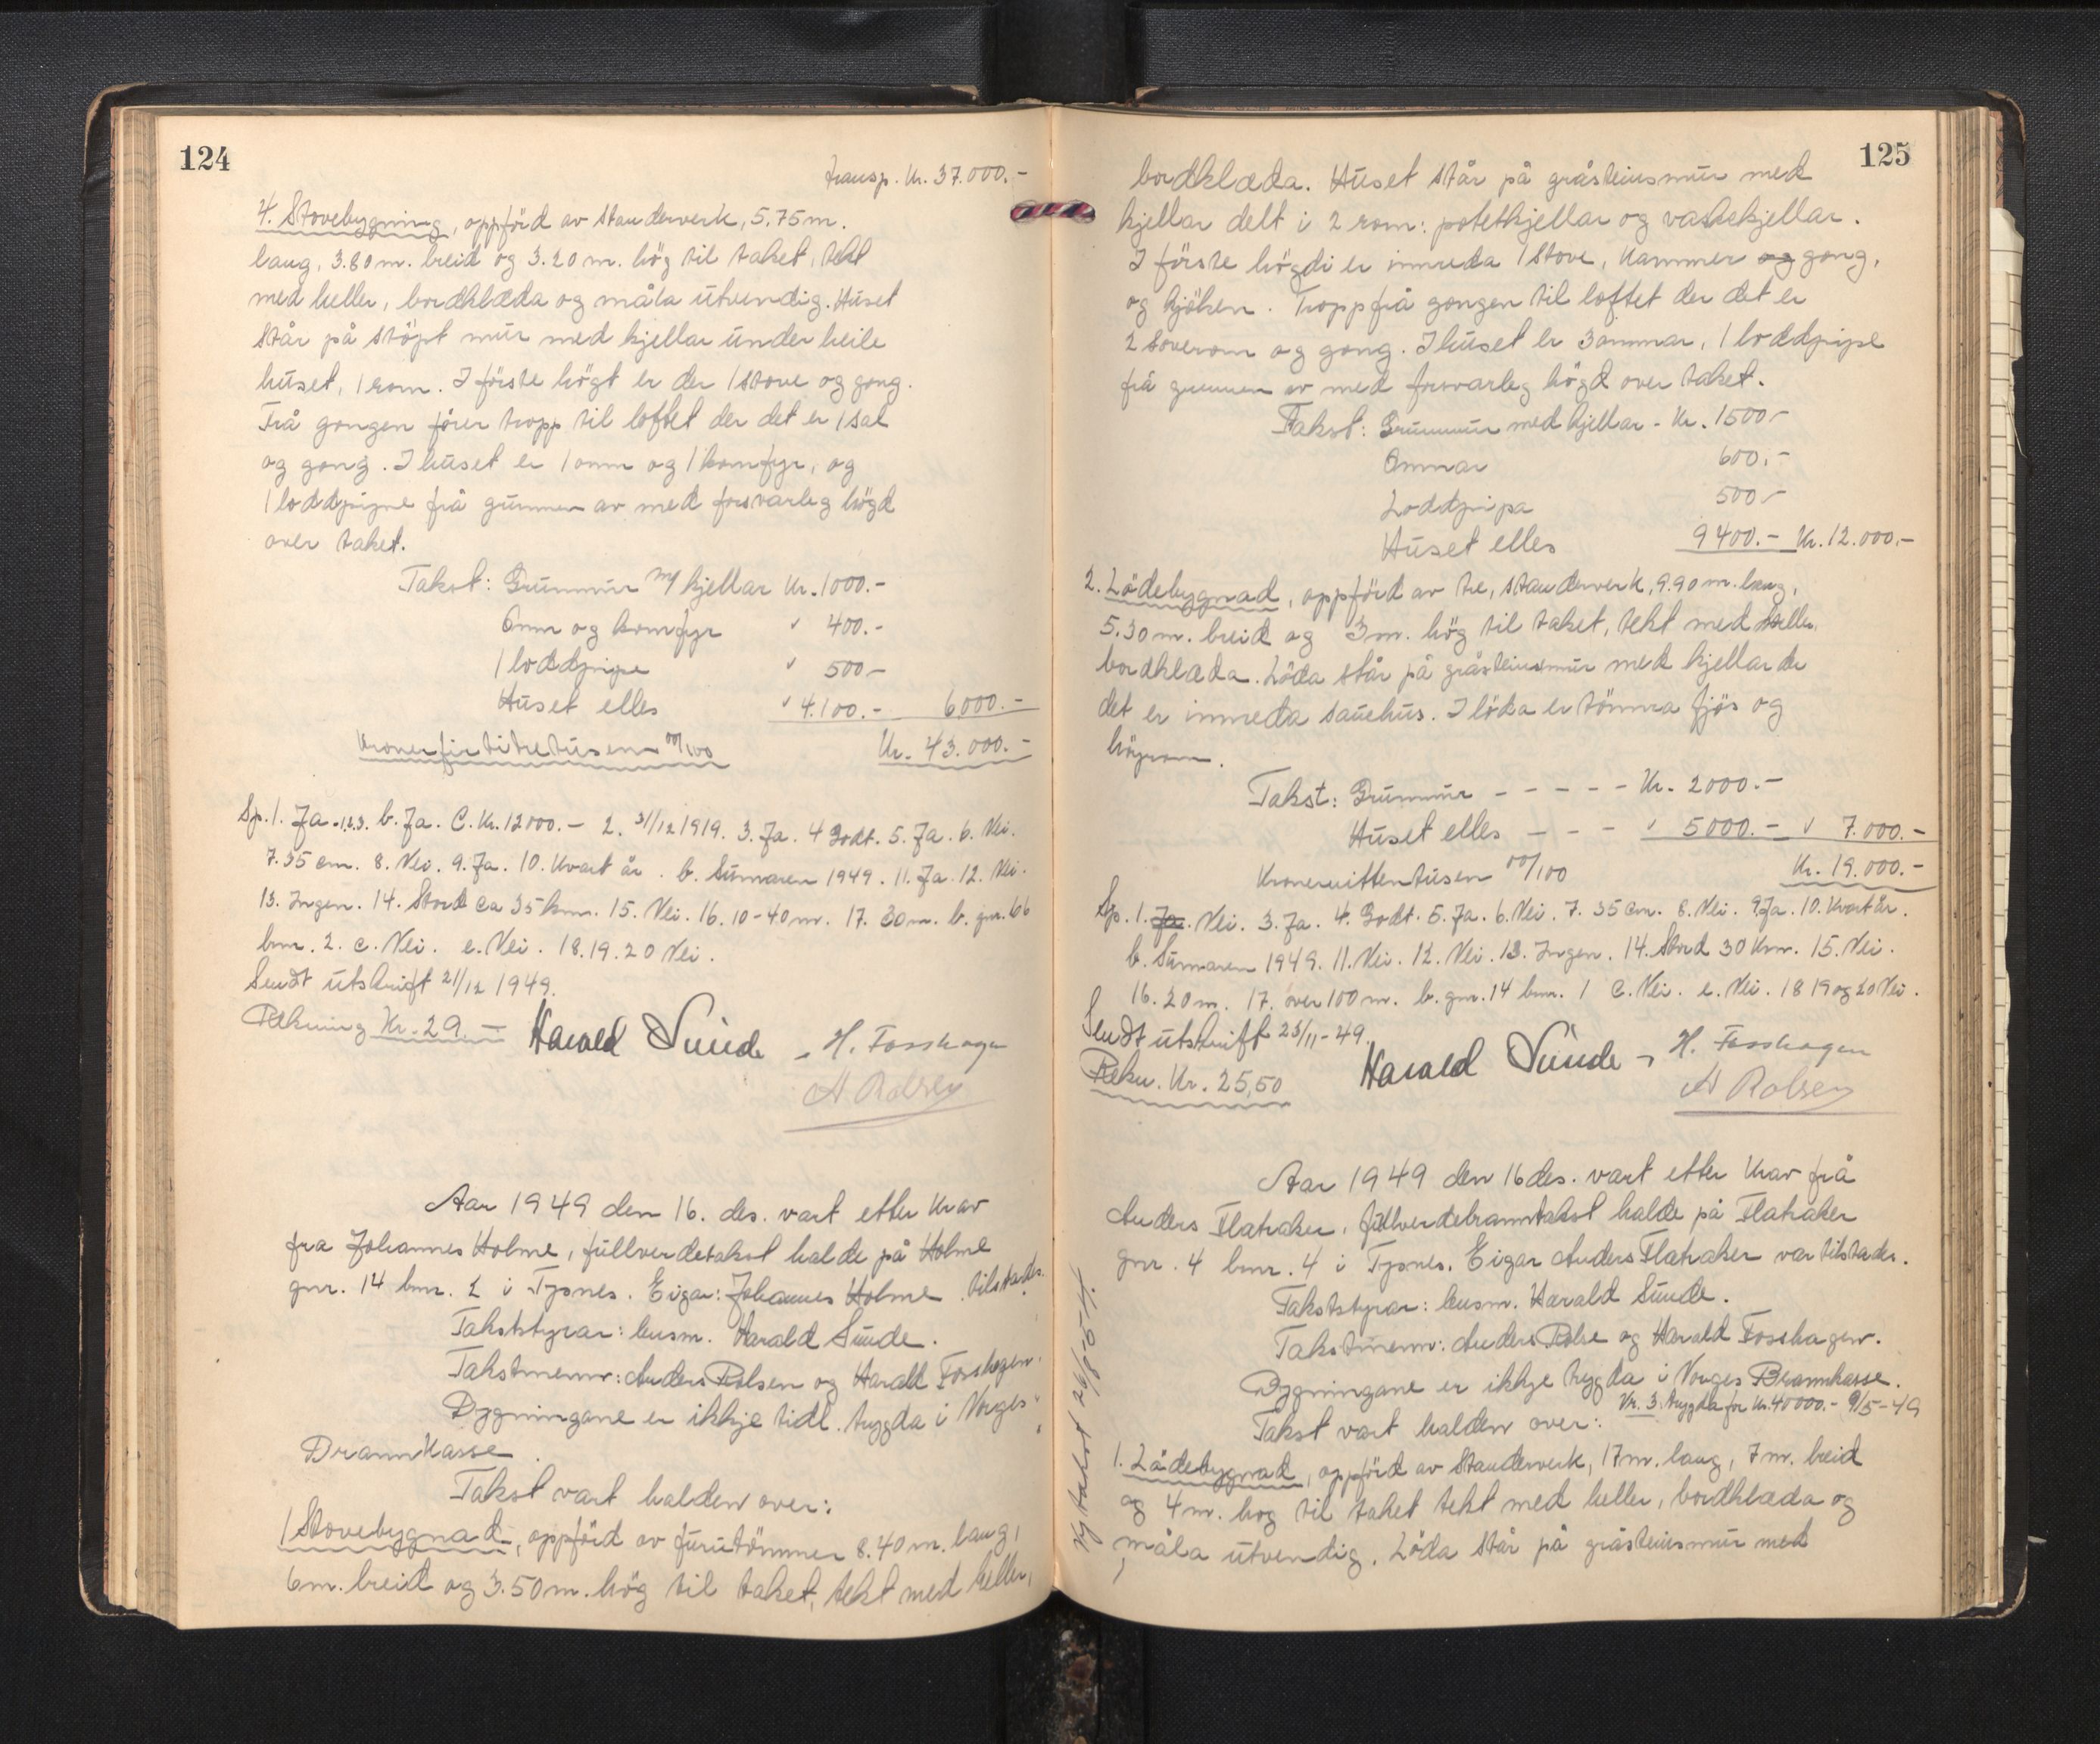 124
Transp. Kr. 37.000.-
4. Stovebygning, oppförd av standerverk, 5.75 m.
lang, 3.80 m. breid og 3.20 m. hög til taket, tekt
med heller, bordklæda og måla utvendig. Huset
står på stöpt mur med kjellar under heile
huset, 1 rom. I förste högt er der 1 stove og gong.
Frå gongen förer tropp til loftet der det er 1 sal
og gong. I huset er 1 omn og 1 komfyr, og
1 loddpipe frå grunnen av med forsvarleg högd
over taket.
Takst: Grunnmur m/ kjellar Kr. 1000.-
Omn og komfyr " 400.-
1 loddpipe " 500-
Huset elles " 4.100.- 6000.-
Kroner förtitretusen 00/100 Kr. 43.000.-
Sp. 1. Ja. 1.2.3. b. Ja. C. Kr. 12000.- 2. 31/12 1919. 3. Ja. 4 Godt. 5. Ja. 6. Nei.
7. 35 cm. 8. Nei. 9. Ja. 10. Kvart år. b. Sumaren 1949. 11. Ja. 12. Nei.
13. Ingen. 14. Stord ca 35 km. 15. Nei. 16. 10-40 m. 17. 30 m. b. gnr. 66
bnr. 2. c. Nei. e. Nei. 18. 19. 20 Nei.
Sendt utskrift 21/12 1949.
Rekning Kr. 29.- Harald Sunde - H. Fosshagen
A Rolsen
Aar 1949 den 16. des. vart etter krav
fra Johannes Holme, fullverdetakst halde på Holme
gnr. 14 bnr. 2 i Tysnes. Eigar: Johannes Holme tilstades.
Takststyrar: lensm. Harald Sunde.
Takstmenn: Anders Rolsen og Harald Fosshagen.
Bygningane er ikkje tidl. trygda i Norges
Brannkasse.
Takst vart halden over:
1 Stovebygnad, oppförd av furutömmer 8.40 m. lang,
6 m. breid og 3.50 m. hög til taket, tekt med heller,
125
bordklæda. Huset står på gråsteinsmur med
kjellar delt i 2 rom: potetkjellar og vaskekjellar.
I förste högdi er innreda 1 stove, kammer og gong,
og kjöken. Tropp frå gongen til loftet der det er
2 soverom og gong. I huset er 3 omnar, 1 loddpipe
frå grunnen av med forsvarleg högd over taket.
Takst: Grunnmur med kjellar - Kr. 1500-
Omnar 600.-
Loddpipa 500-
Huset elles 9400.- Kr. 12.000.-
2. Lödebygnad, oppförd av tre, standerverk, 9.90 m. lang,
5.30 m. breid og 3 m. hög til taket, tekt med heller,
bordklæda. Löda står på gråsteinsmur med kjellar der
det er innreda sauehus. I löda er tömra fjös og
höyrom.
Takst: Grunnmur - - - - - Kr. 2000.-
Huset elles - - - " 5000.- " 7.000.-
Kroner nitten tusen 00/100 Kr. 19.000.-
Sp. 1. Ja. Nei. 3. Ja. 4. Godt. 5. Ja. 6. Nei. 7. 35 cm. 8. Nei. 9. Ja. 10. Kvart år.
b. Sumaren 1949. 11. Nei. 12. Nei. 13. Ingen. 14. Stord 30 km. 15. Nei.
16. 20 m. 17. over 100 m. b. gnr. 14 bnr. 1 C. Nei. e. Nei. 18 19 og 20 Nei.
Sendt utskrift 23/11-49.
Rekn. Kr. 25,50 Harald Sunde - H. Fosshagen
A Rolsen
Aar 1949 den 16 des. vart etter krav frå
Anders Flatråker, fullverdebranntakst halde på Flatråker
gnr. 4 bnr. 4 i Tysnes. Eigar Anders Flatråker var tilstades.
Takststyrar: lensm. Harald Sunde.
Takstmenn: Anders Rolse og Harald Fosshagen.
Bygningane er ikkje trygda i Norges Brannkasse.
Nr. 3. trygda for kr. 40000.- 9/5-49
Takst vart halden over:
1. Lödebygnad, oppförd av standerverk, 17 m. lang, 7 m. breid
og 4 m. hög til taket tekt med heller, bordklæda og
måla utvendig. Löda står på gråsteinsmur med
Ny takst 26/8-54.